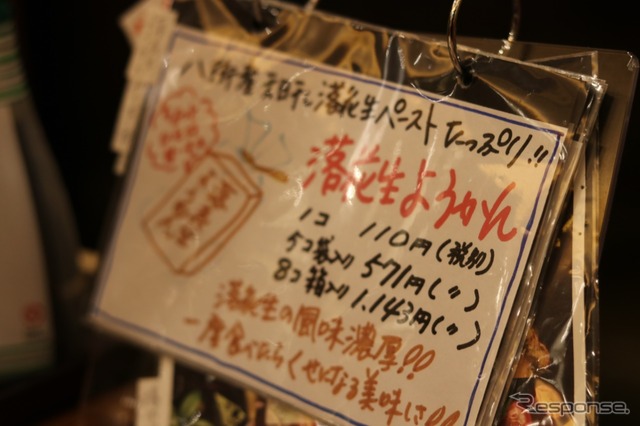 八街産天日干し落花生ペーストたっぷり!!
落花生ようかん
1コ 110円(税別)
5コ袋入り 571円(〃)
8コ箱入り 1,143円(〃)
落花生の風味濃厚!!
一度食べたらくせになる美味しさ!!
Response.